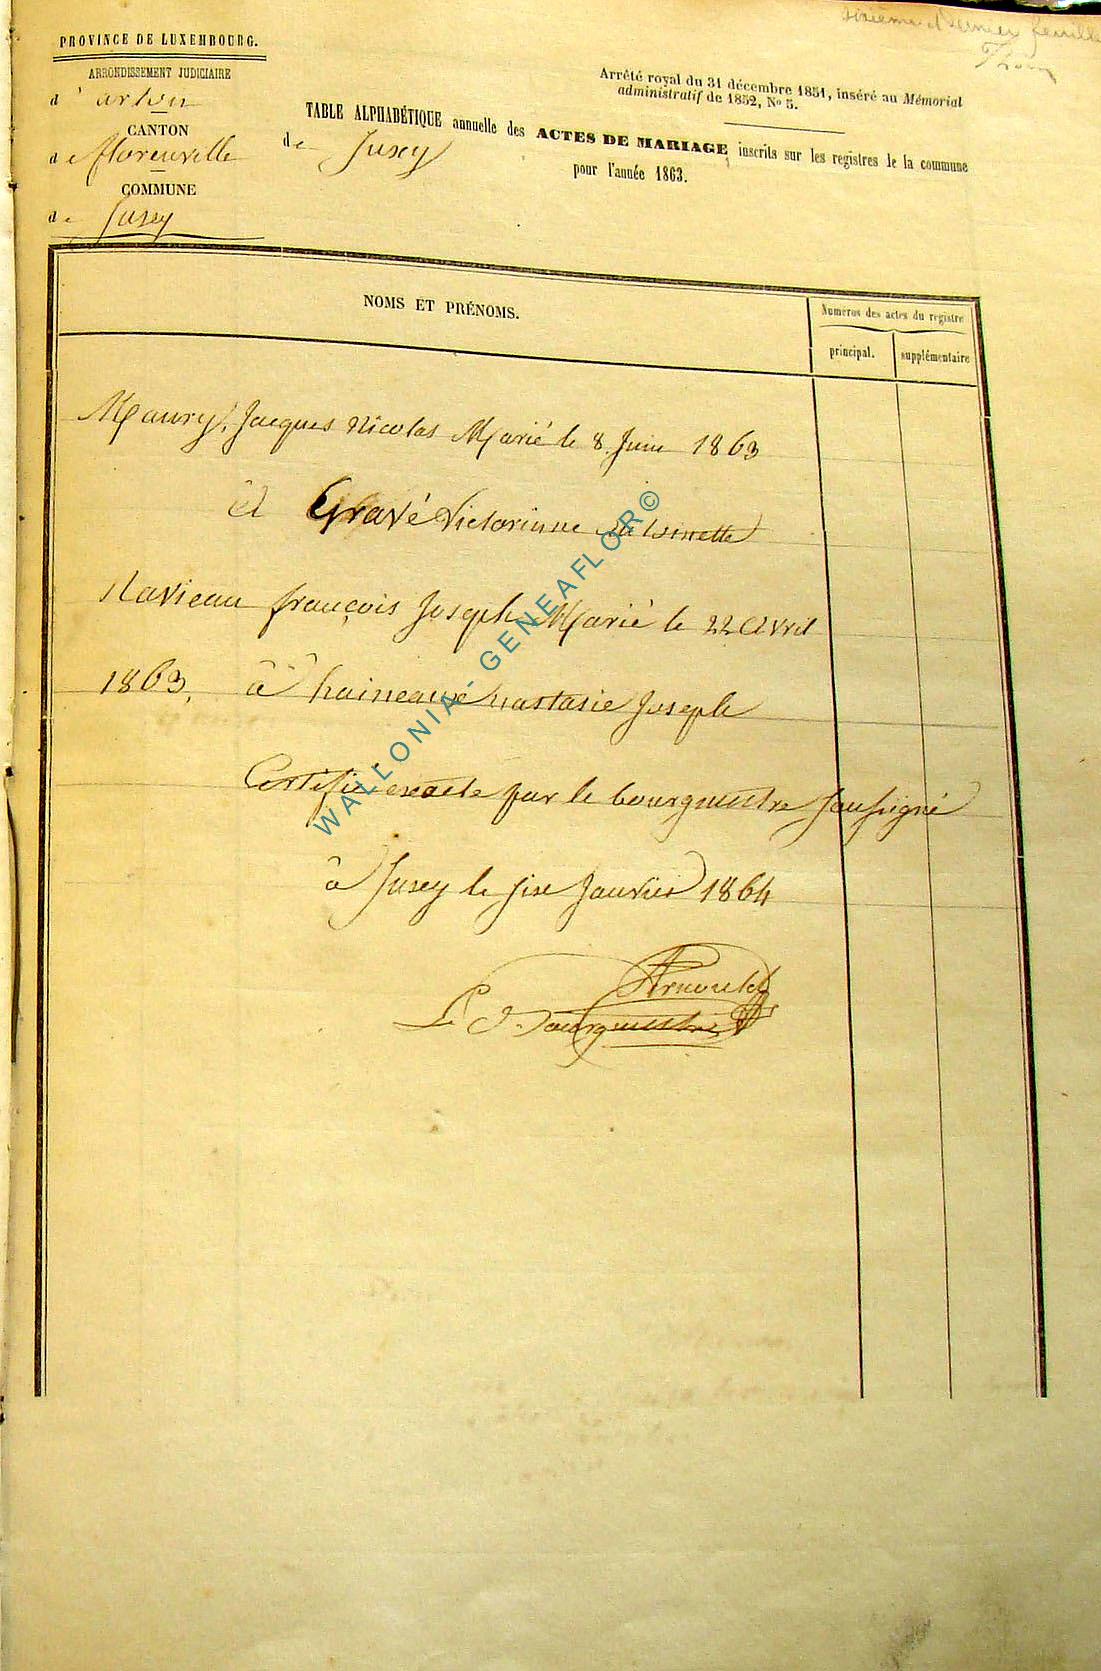 sixième et dernier feuille
PROVINCE DE LUXEMBOURG.
ARRONDISSEMENT JUDICIAIRE
d'arlon
CANTON
de florenville
COMMUNE
de Jusey
Arrêté royal du 31 décembre 1851, inséré au Mémorial
administratif de 1852, No 5.
TABLE ALPHABÉTIQUE annuelle des ACTES DE MARIAGE inscrits sur les registres de la commune
de Jusey pour l'année 1863.
NOMS ET PRÉNOMS.
Numéros des actes du registre
principal. supplémentaire
Maury, Jacques Nicolas Marié le 8 Juin 1863
à Gravé Victorinne antoinette
Navieau françois Joseph Marié le 22 avril
1863, à haineaux nastasie Joseph
Certifié exacte par le bourgmestre Sousigné
à Jusey le six Janvier 1864
Arnould
Le Bourgmestre
WALLONIA - GENEAFLOR ©